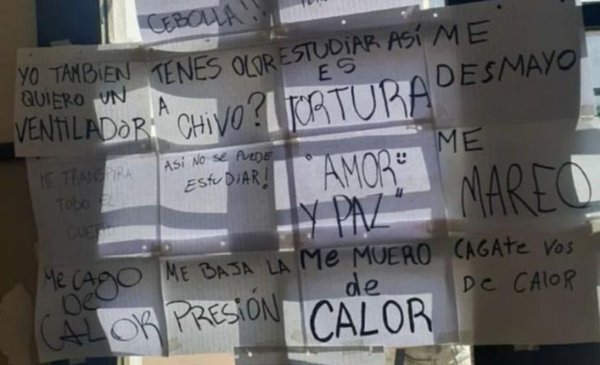 CEBOLLA!!
YO TAMBIEN
QUIERO UN
VENTILADOR
TENES OLOR
A CHIVO?
ESTUDIAR ASÍ
ES
TORTURA
ME
DESMAYO
ME TRANSPIRA
TODO EL
CUERPO
ASI NO SE PUEDE
ESTUDIAR!
"AMOR
Y PAZ"
ME
MAREO
ME CAGO
DE
CALOR
ME BAJA LA
PRESIÓN
Me MUERO
de
CALOR
CAGATE VOS
DE CALOR